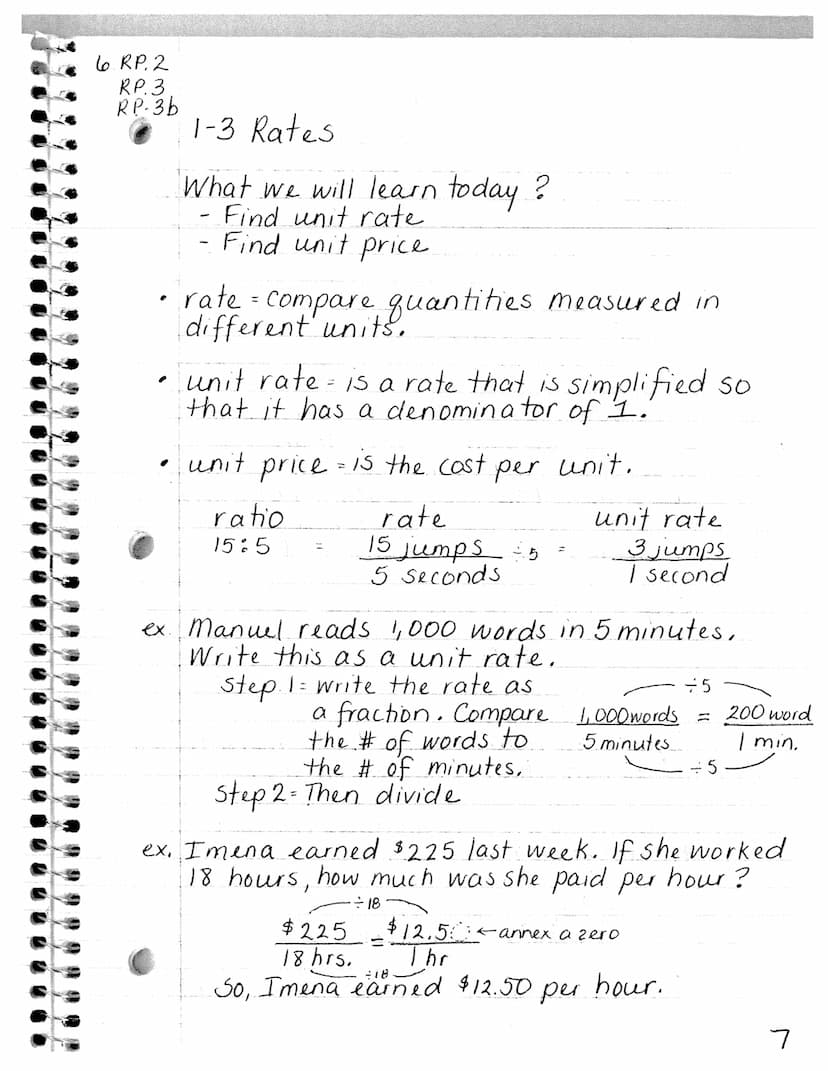 6 RP.2
RP.3
RP.3b
1-3 Rates
What we will learn today?
- Find unit rate
- Find unit price
• rate = compare quantities measured in
different units.
• unit rate = is a rate that is simplified so
that it has a denominator of 1.
• unit price = is the cost per unit.
ratio rate unit rate
15:5 = 15 jumps ÷5 = 3 jumps
5 seconds 1 second
ex. Manuel reads 1,000 words in 5 minutes.
Write this as a unit rate.
Step 1 = write the rate as ÷5
a fraction. Compare 1,000 words = 200 word
the # of words to 5 minutes 1 min.
the # of minutes. ÷5
Step 2 = Then divide
ex. Imena earned $225 last week. If she worked
18 hours, how much was she paid per hour?
÷18
$225 = $12.50 ← annex a zero
18 hrs. 1 hr
÷18
So, Imena earned $12.50 per hour.
7